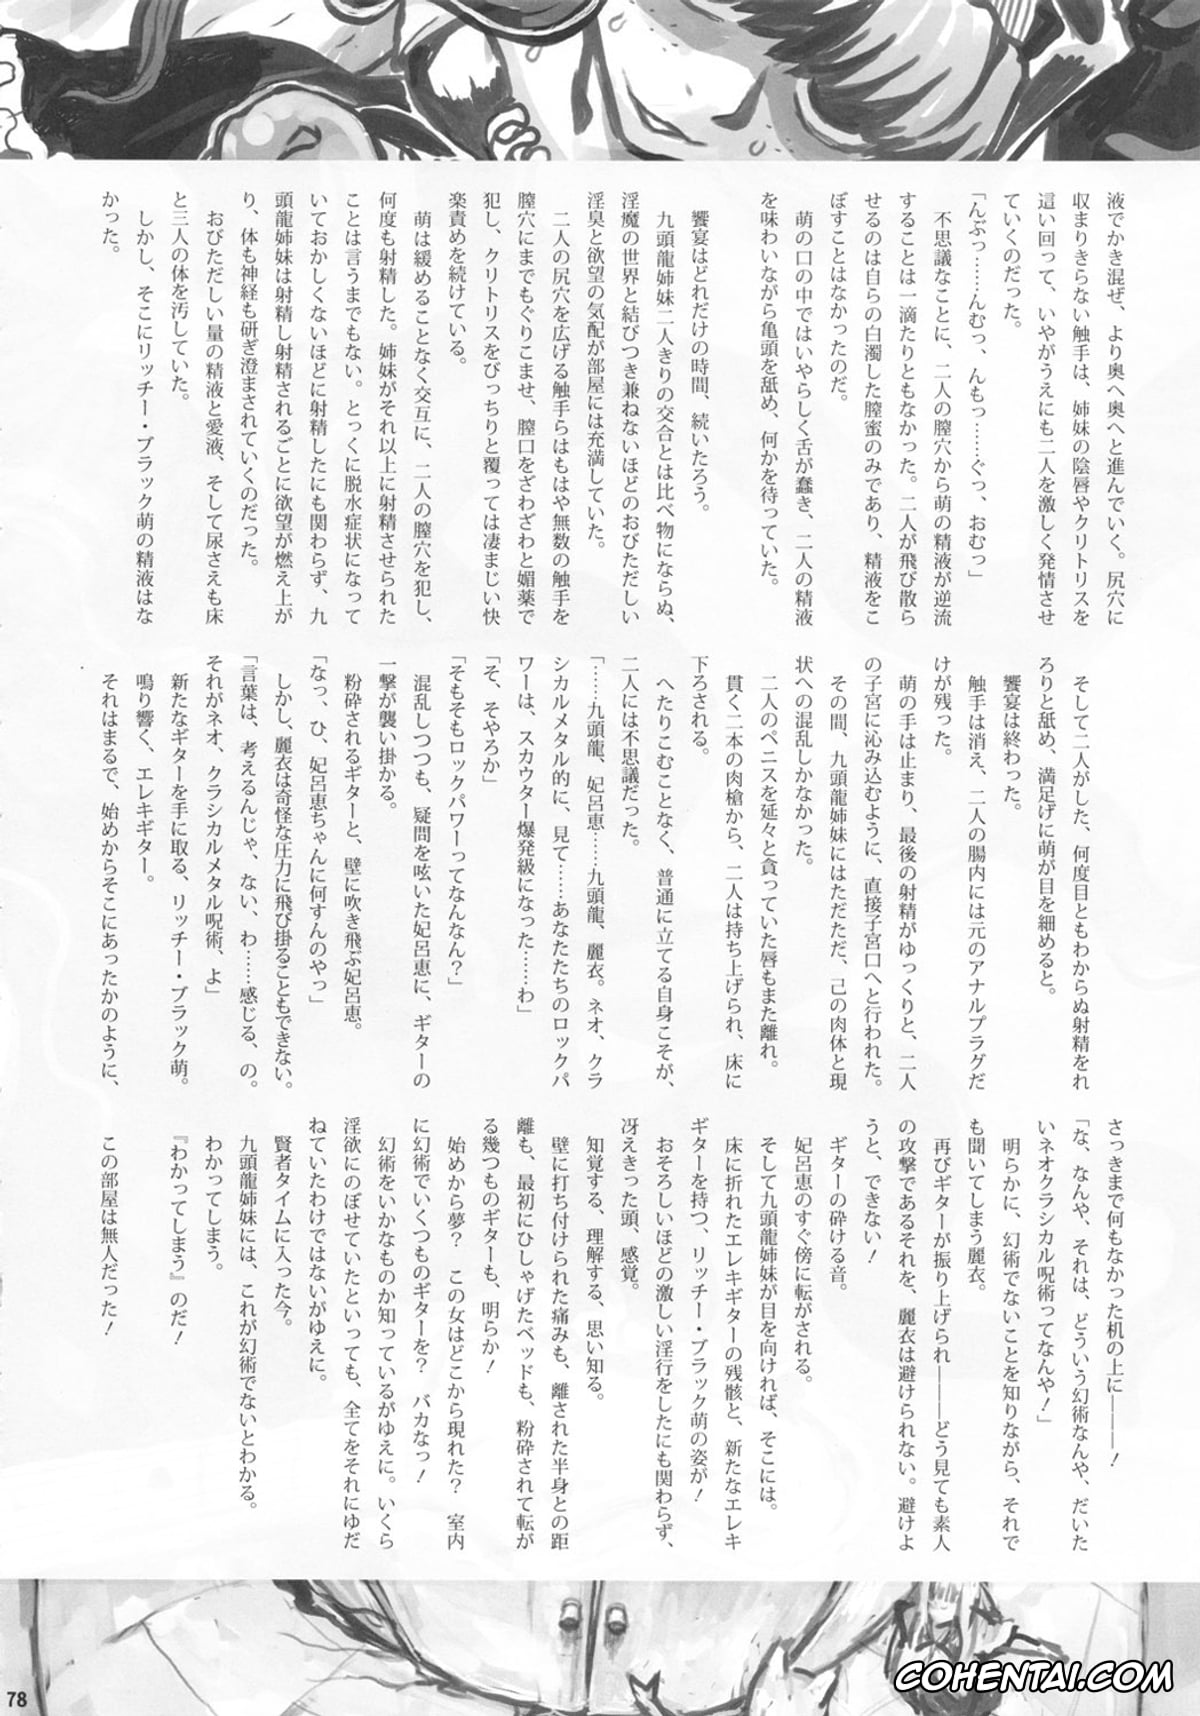 液でかき混ぜ、より奥へ奥へと進んでいく。尻穴に
収まりきらない触手は、姉妹の陰唇やクリトリスを
這い回って、いやがうえにも二人を激しく発情させ
ていくのだった。
「んぶっ……んむっ、んもっ……ぐっ、おむっ」
不思議なことに、二人の膣穴から萌の精液が逆流
することは一滴たりともなかった。二人が飛び散ら
せるのは自らの白濁した膣蜜のみであり、精液をこ
ぼすことはなかったのだ。
萌の口の中ではいやらしく舌が蠢き、二人の精液
を味わいながら亀頭を舐め、何かを待っていた。
饗宴はどれだけの時間、続いたろう。
九頭龍姉妹二人きりの交合とは比べ物にならぬ、
淫魔の世界と結びつき兼ねないほどのおびただしい
淫臭と欲望の気配が部屋には充満していた。
二人の尻穴を広げる触手らはもはや無数の触手を
膣穴にまでもぐりこませ、膣口をざわざわと媚薬で
犯し、クリトリスをびっちりと覆っては凄まじい快
楽責めを続けている。
萌は緩めることなく交互に、二人の膣穴を犯し、
何度も射精した。姉妹がそれ以上に射精させられた
ことは言うまでもない。とっくに脱水症状になって
いておかしくないほどに射精したにも関わらず、九
頭龍姉妹は射精し射精されるごとに欲望が燃え上が
り、体も神経も研ぎ澄まされていくのだった。
おびただしい量の精液と愛液、そして尿さえも床
と三人の体を汚していた。
しかし、そこにリッチー・ブラック萌の精液はな
かった。
そして二人がした、何度目ともわからぬ射精をれ
ろりと舐め、満足げに萌が目を細めると。
饗宴は終わった。
触手は消え、二人の腸内には元のアナルプラグだ
けが残った。
萌の手は止まり、最後の射精がゆっくりと、二人
の子宮に沁み込むように、直接子宮口へと行われた。
その間、九頭龍姉妹にはただただ、己の肉体と現
状への混乱しかなかった。
二人のペニスを延々と貪っていた唇もまた離れ。
貫く二本の肉槍から、二人は持ち上げられ、床に
下ろされる。
へたりこむことなく、普通に立てる自身こそが、
二人には不思議だった。
「……九頭龍、妃呂恵……九頭龍、麗衣。ネオ、クラ
シカルメタル的に、見て……あなたたちのロックパ
ワーは、スカウター爆発級になった……わ」
「そ、そやろか」
「そもそもロックパワーってなんなん？」
混乱しつつも、疑問を呟いた妃呂恵に、ギターの
一撃が襲い掛かる。
粉砕されるギターと、壁に吹き飛ぶ妃呂恵。
「なっ、ひ、妃呂恵ちゃんに何すんのやっ」
しかし、麗衣は奇怪な圧力に飛び掛ることもできない。
「言葉は、考えるんじゃ、ない、わ……感じる、の。
それがネオ、クラシカルメタル呪術、よ」
新たなギターを手に取る、リッチー・ブラック萌。
鳴り響く、エレキギター。
それはまるで、始めからそこにあったかのように、
さっきまで何もなかった机の上に―――！
「な、なんや、それは、どういう幻術なんや、だいた
いネオクラシカル呪術ってなんや！」
明らかに、幻術でないことを知りながら、それで
も聞いてしまう麗衣。
再びギターが振り上げられ――どう見ても素人
の攻撃であるそれを、麗衣は避けられない。避けよ
うと、できない！
ギターの砕ける音。
妃呂恵のすぐ傍に転がされる。
そして九頭龍姉妹が目を向ければ、そこには。
床に折れたエレキギターの残骸と、新たなエレキ
ギターを持つ、リッチー・ブラック萌の姿が！
おそろしいほどの激しい淫行をしたにも関わらず、
冴えきった頭、感覚。
知覚する、理解する、思い知る。
壁に打ち付けられた痛みも、離された半身との距
離も、最初にひしゃげたベッドも、粉砕されて転が
る幾つものギターも、明らか！
始めから夢？　この女はどこから現れた？　室内
に幻術でいくつものギターを？　バカなっ！
幻術をいかなものか知っているがゆえに。いくら
淫欲にのぼせていたといっても、全てをそれにゆだ
ねていたわけではないがゆえに。
賢者タイムに入った今。
九頭龍姉妹には、これが幻術でないとわかる。
わかってしまう。
『わかってしまう』のだ！
この部屋は無人だった！
78
COHENTAI.COM